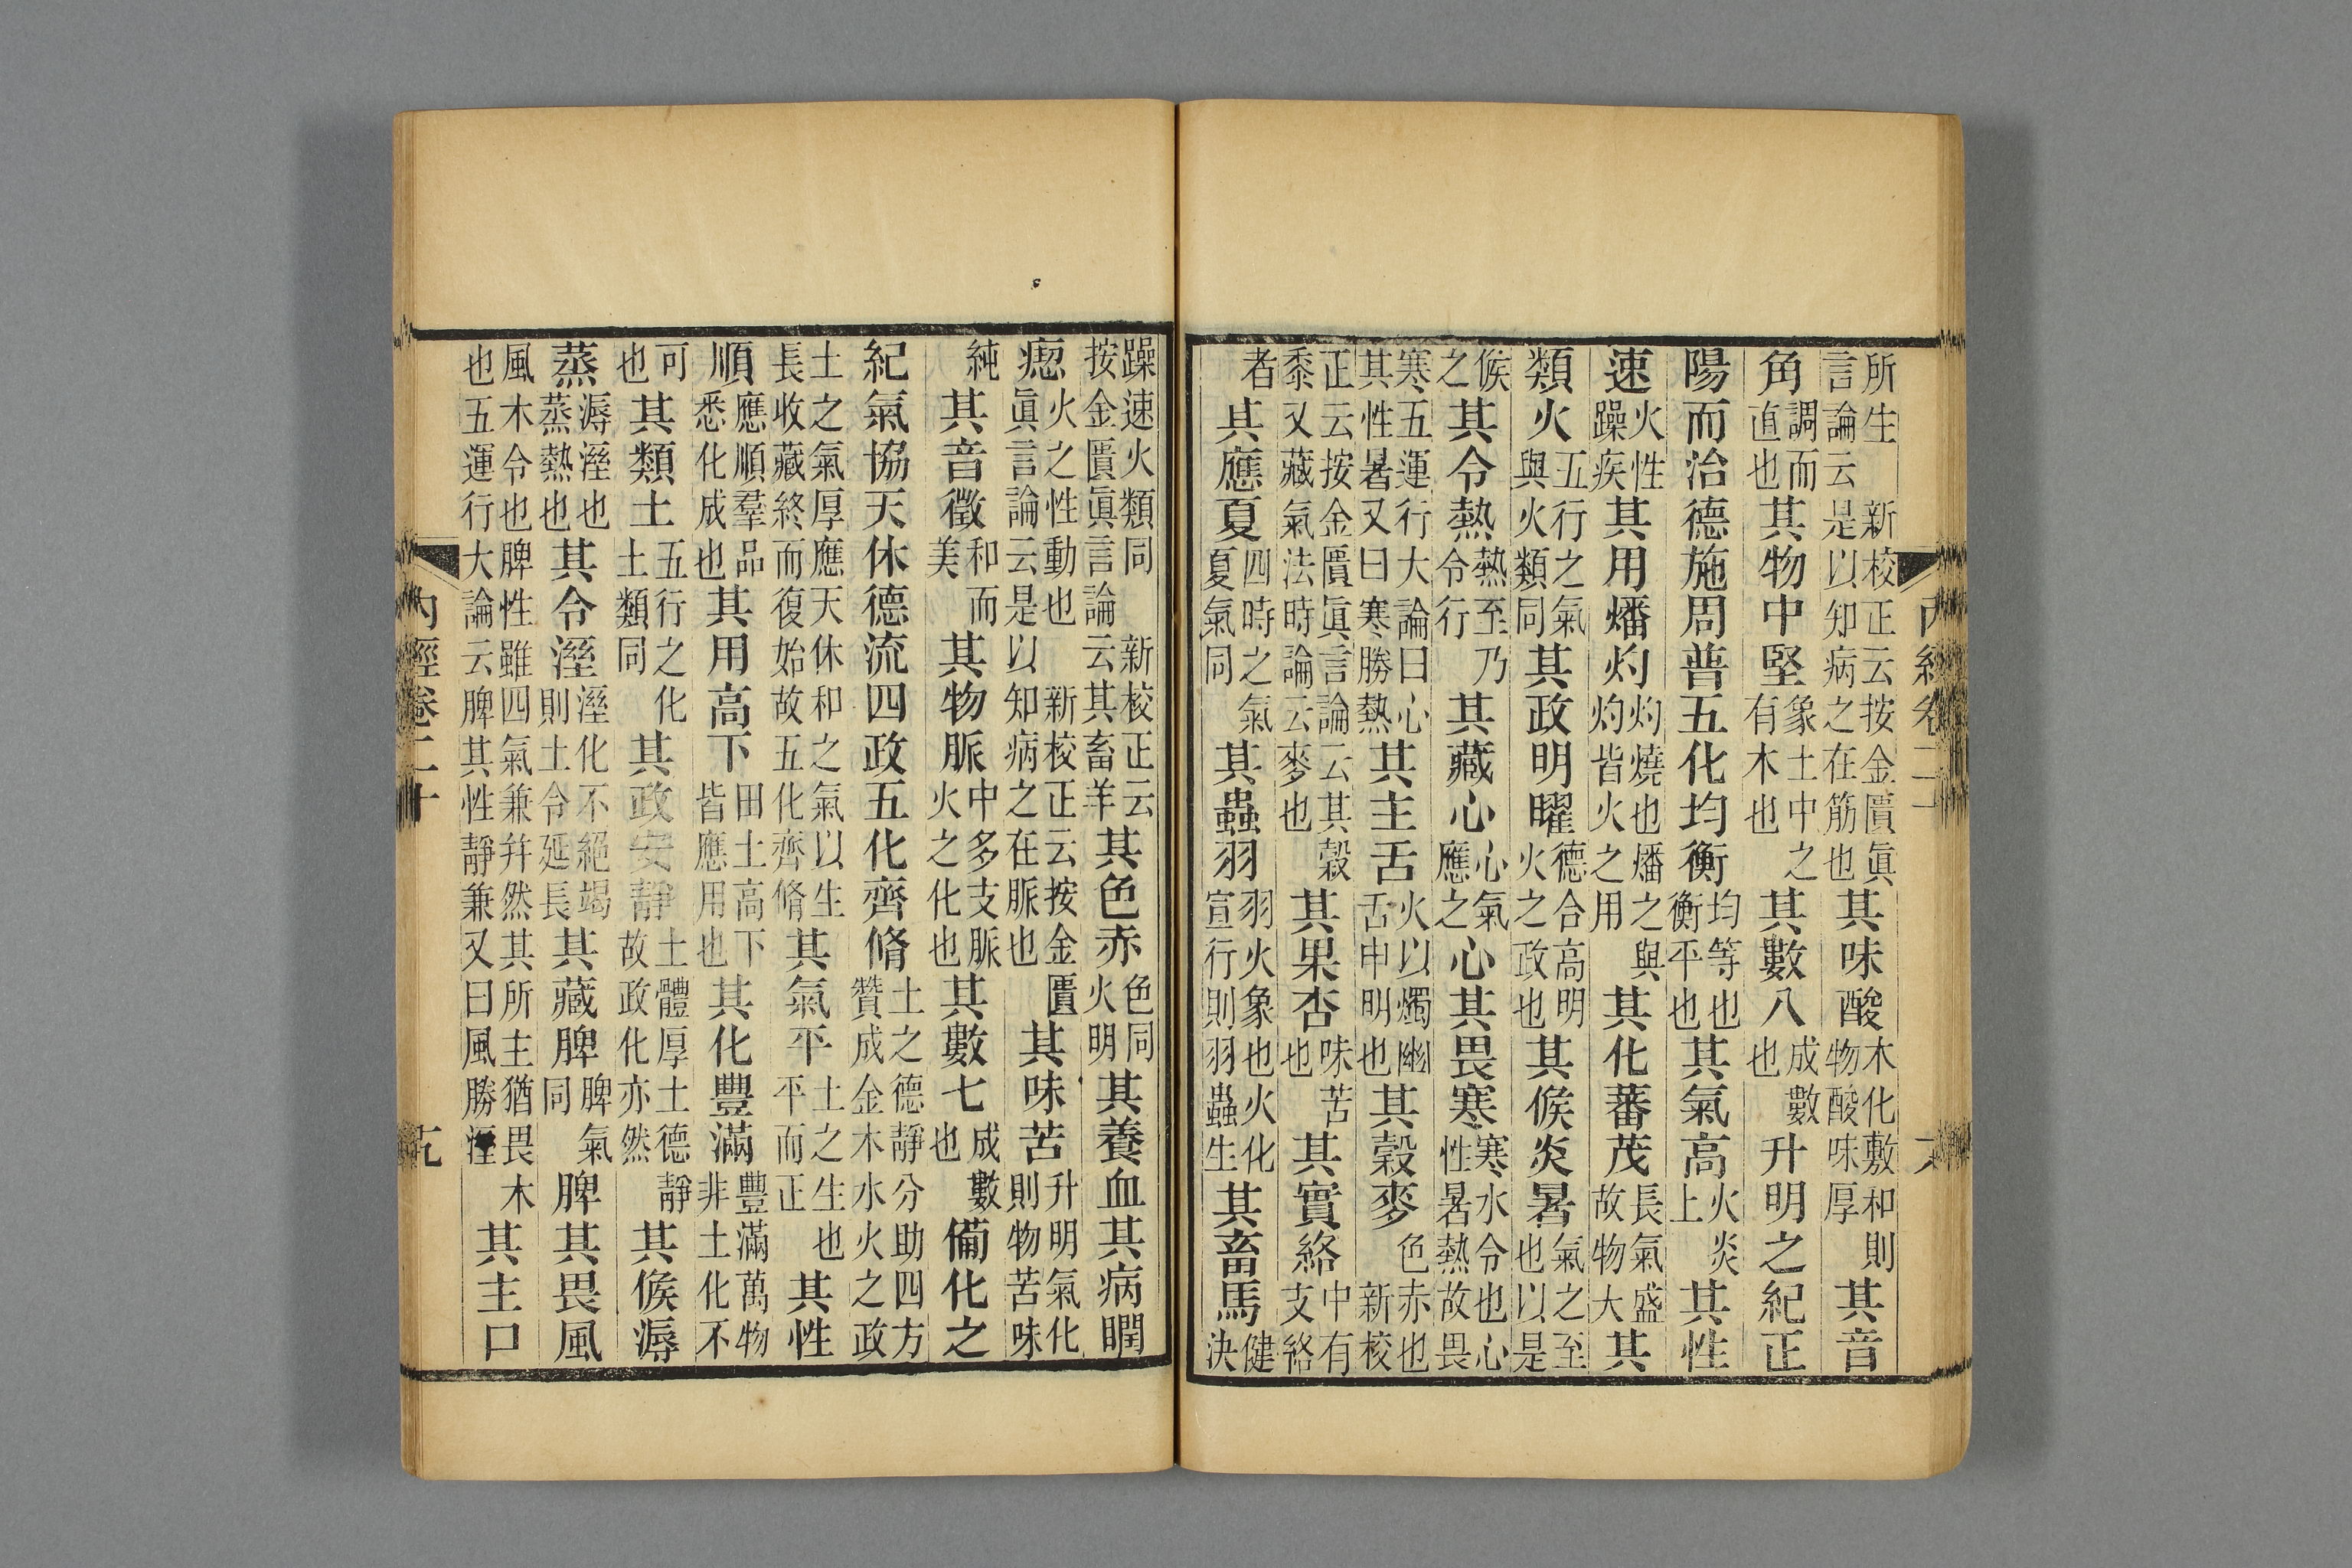 內經卷二十
所生新校正云按金匱眞言論云是以知病之在筋也其味酸木化敷和則物酸味厚其音
角調而直也其物中堅象土中之有木也其數八成數也升明之紀正
陽而治德施周普五化均衡均等也衡平也其氣高火炎上其性
速火性躁疾其用燔灼灼燒也燔之與灼皆火之用其化蕃茂長氣盛故物大其
類火五行之氣與火類同其政明曜德合高明火之政也其候炎暑氣之至也以是
候之其令熱熱至乃令行其藏心心氣應之心其畏寒寒水令也心性暑熱故畏
寒五運行大論曰心其性暑又曰寒勝熱其主舌火以燭幽舌申明也其穀麥色赤也新校
正云按金匱眞言論云其穀黍又藏氣法時論云麥也其果杏味苦也其實絡中有支絡
者其應夏四時之氣夏氣同其蟲羽羽火象也火化宣行則羽蟲生其畜馬健決
躁速火類同新校正云按金匱眞言論云其畜羊其色赤色同火明其養血其病瞤
瘛火之性動也新校正云按金匱眞言論云是以知病之在脈也其味苦升明氣化則物苦味
純其音徵和而美其物脈中多支脈火之化也其數七成數也備化之
紀氣協天休德流四政五化齊脩土之德靜分助四方贊成金木水火之政
土之氣厚應天休和之氣以生長收藏終而復始故五化齊脩其氣平土之生也平而正其性
順應順羣品悉化成也其用高下田土高下皆應用也其化豐滿豐滿萬物非土化不
可也其類土五行之化土類同其政安靜土體厚土德靜故政化亦然其候溽
蒸溽溼也蒸熱也其令溼溼化不絕竭則土令延長其藏脾脾氣同脾其畏風
風木令也脾性雖四氣兼幷然其所主猶畏木也五運行大論云脾其性靜兼又曰風勝溼其主口
內經卷二十